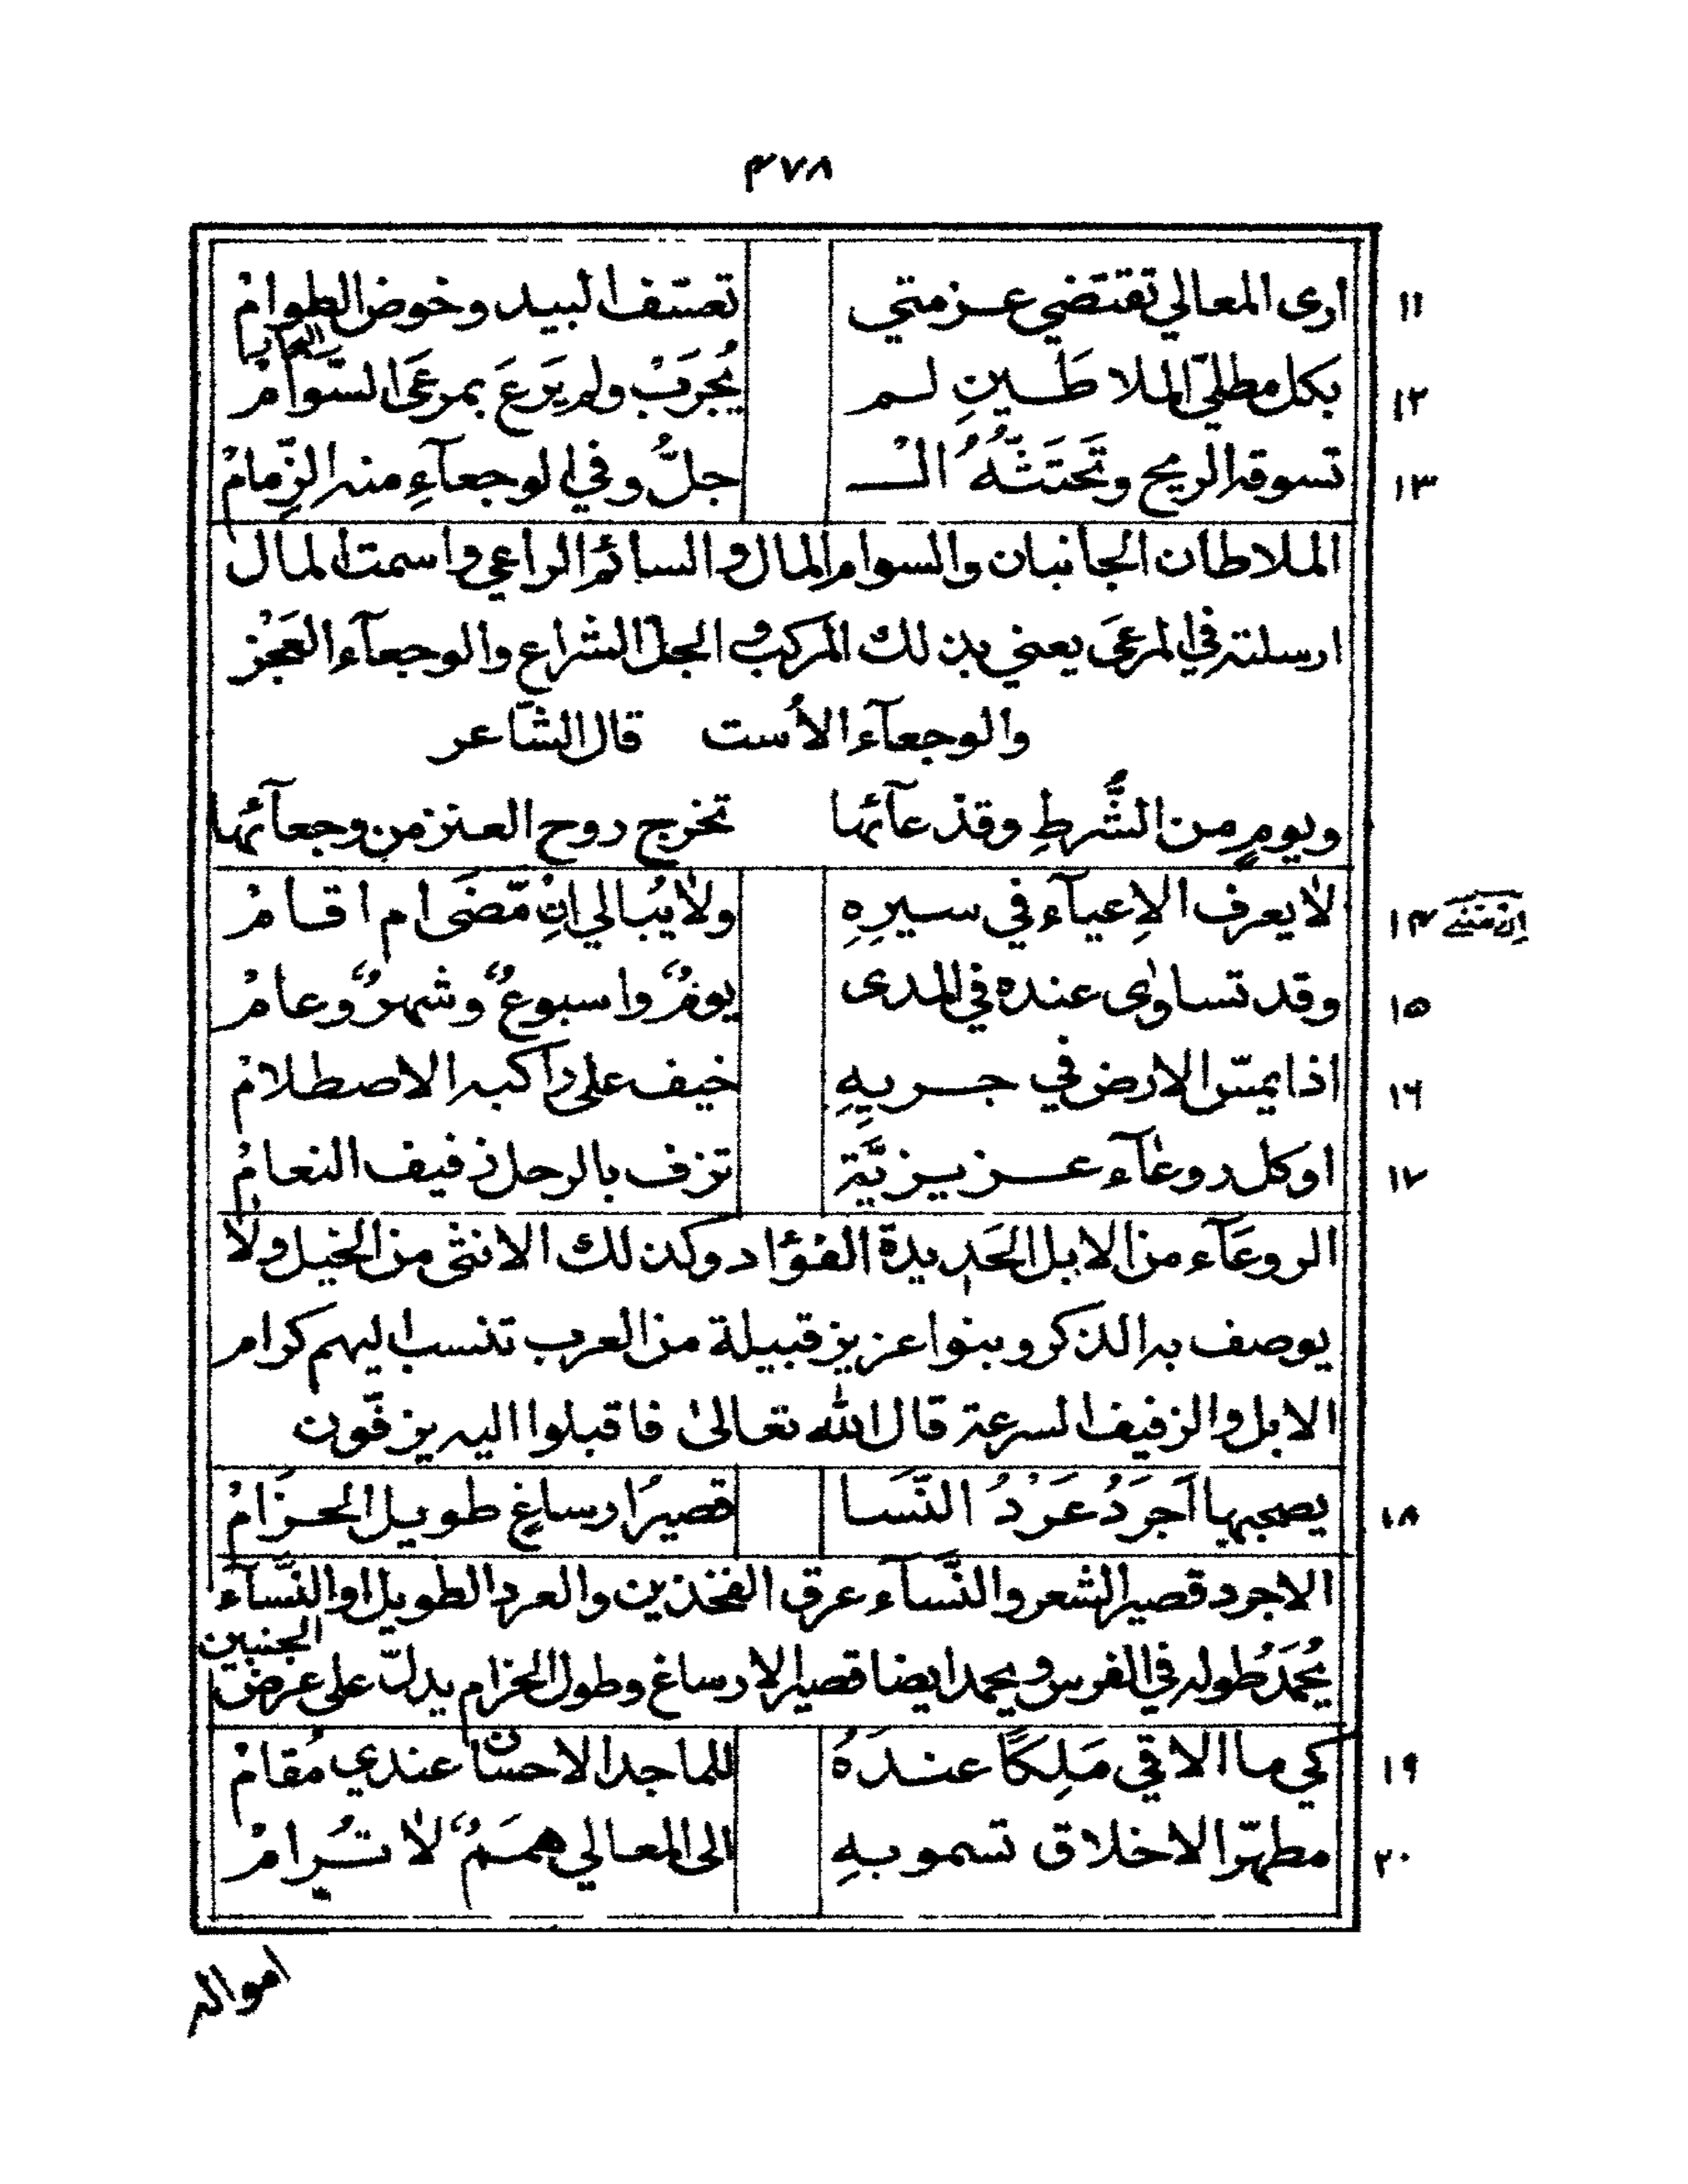 ٤٧٨
١١ ارى المعالي تقتضي عزمتي تعسّف البيد وخوض الطوامْ
١٢ بكل مطليّ الملاطَينِ لم يُجرَبْ ولم يَرعَ بمرعَى السَّوامْ
١٣ تسوقه الريح وتَحتَثُّهُ الـ جلُّ وفي الوجعآءِ منه الزِّمامْ
الملاطان الجانبان والسوام المال والسائم الراعي واسمت المال
ارسلته في المرعَى يعني بذلك المركب والجلّ الشراع والوجعآء العَجْز
والوجعآء الأست قال الشّاعر
ويومٍ من الشَّرطِ وقذ عآئها تخرج روح العنز من وجعآئها
١٤ لا يعرف الاِعيآء في سيرِهِ ولا يُبالي اِنْ مّضَى ام اقامْ
١٥ وقد تساوٰى عنده في المدى يومٌ واسبوعٌ وشهرٌ وعامْ
١٦ اذا يمسّ الارض في جريهِ خيف على راكبه الاصطلامْ
١٧ اوكل روعآء عزيزيَّة تزف بالرحل زفيف النعامْ
الروعَآء من الابل الحَديدة الفؤاد وكذلك الانثى من الخيل ولا
يوصف به الذكر وبنوا عزيز قبيلة من العرب تنسب اليهم كرام
الابل والزفيف السرعة قال الله تعالىٰ فاقبلوا اليه يزفّون
١٨ يصحبها اَجرَدُ عَرْدُ النَّسَا قصيرُ ارساغٍ طويل الحزَامْ
الاجرد قصير الشعر والنَّسآء عرق الفخذين والعرد الطويل او النَّسآء
يُحمَدُ طوله في الفرس ويحمد ايضا قصير الارساغ وطول الحزام يدلّ على عرض الجنبين
١٩ كي ما الاقي مَلِكًا عندَهُ للماجد الاحسان عندي مُقامْ
٢٠ مطهّر الاخلاق تسمو بهِ الى المعالي هممٌ لا تُرامْ
امواله